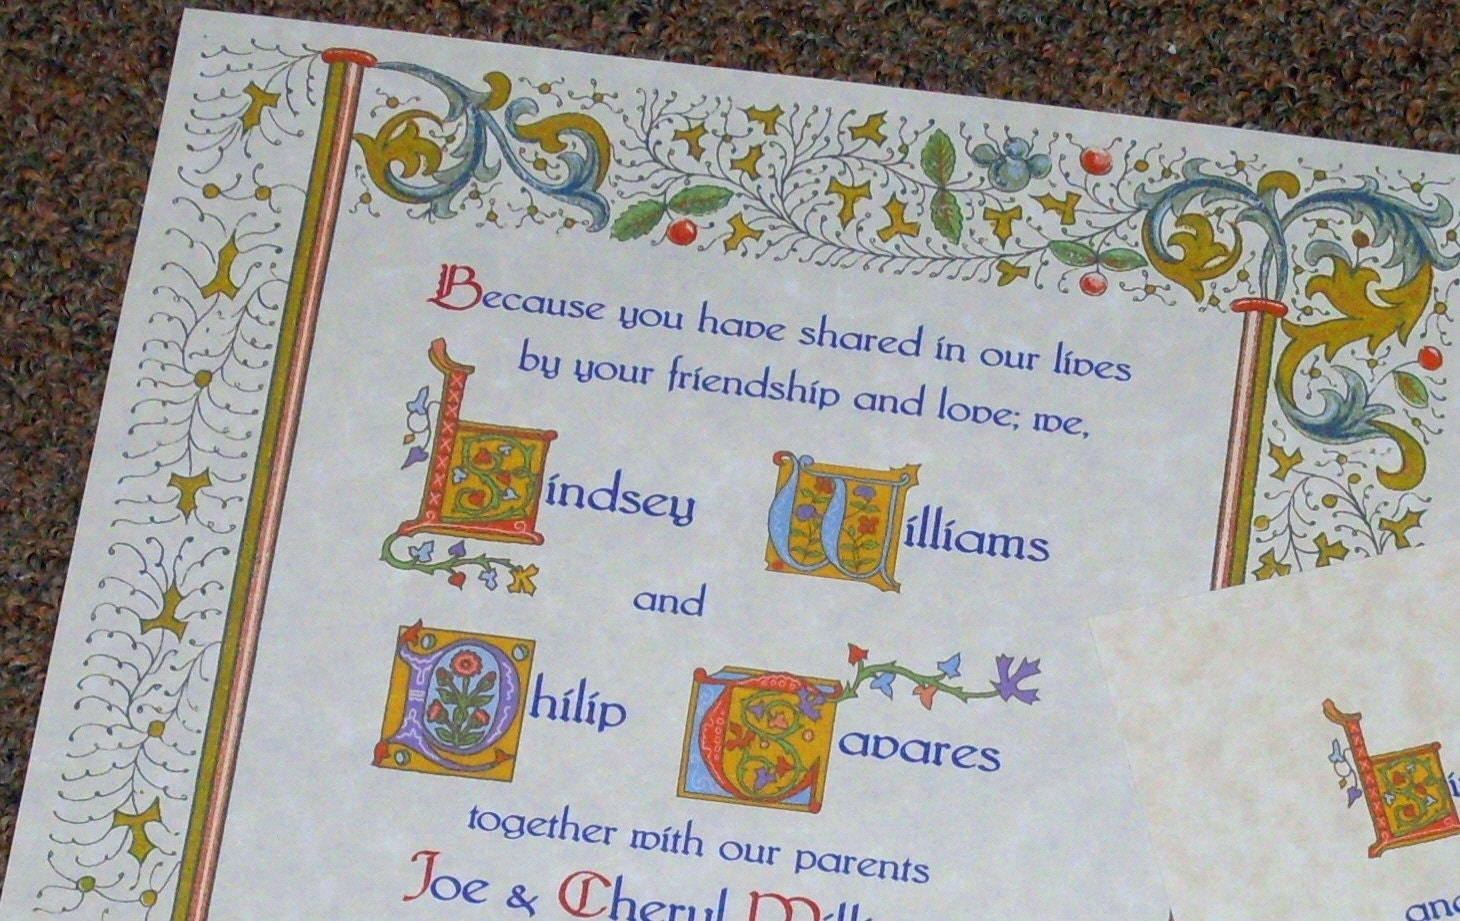 Because you have shared in our lives
by your friendship and love; we,
Lindsey Williams
and
Philip Tavares
together with our parents
Joe & Cheryl